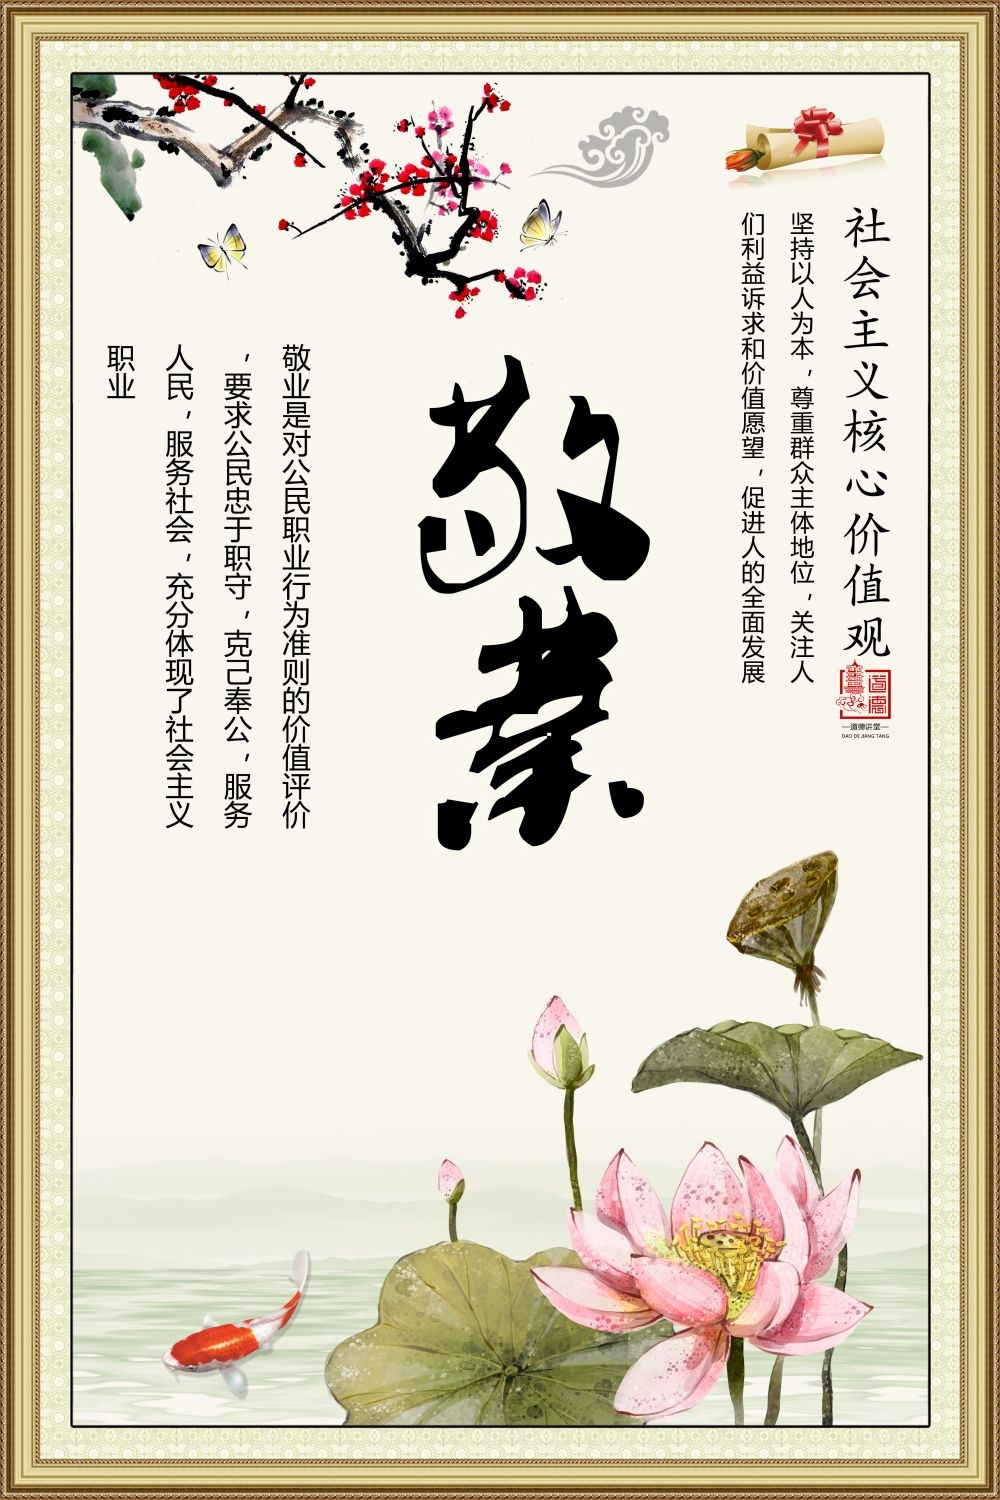 社会主义核心价值观
道德
—道德讲堂—
DAO DE JIANG TANG
坚持以人为本，尊重群众主体地位，关注人
们利益诉求和价值愿望，促进人的全面发展
敬業
敬业是对公民职业行为准则的价值评价
，要求公民忠于职守，克己奉公，服务
人民，服务社会，充分体现了社会主义
职业